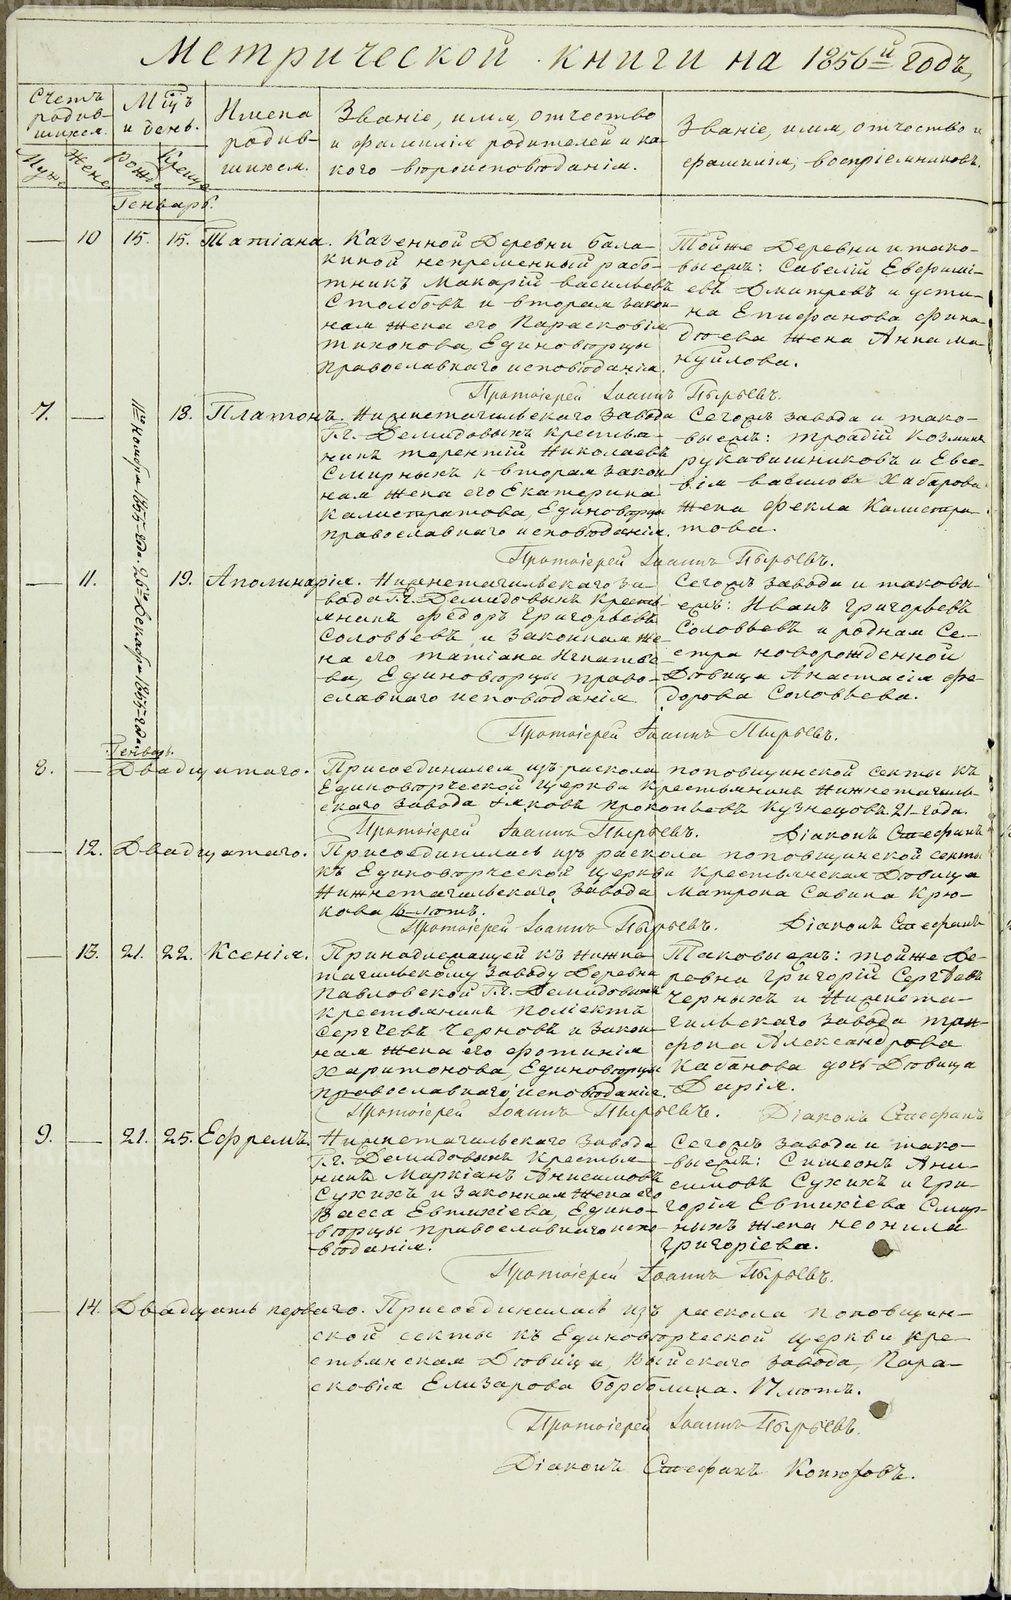 Метрической книги на 1856й годъ,
Счетъ родив-шихся.
Мцъ и день.
Имена родив-шихся.
Званіе, имя, отчество и фамилія родителей и ка-кого вѣроисповѣданія.
Званіе, имя, отчество и фамилія, воспріемниковъ.
Муж. Жене Рожд Креще
Генварь.
— 10 15. 15. Татіана. Казенной Деревни Бала-
киной непременный рабо-
тникъ Макарій Васильевъ
Столбовъ и вторая закон-
ная жена его Парасковія
Тихонова, Единовѣрцы
православнаго исповѣданія.
Тойже Деревни и тако-
выежъ: Савелій Евфимі-
евъ Дмитревъ и усти-
на Епифанова
жена Анна Ма-
нуйлова.
Протоіерей Іоаннъ Пырьевъ.
7. — 18. Платонъ. Нижнетагильскаго Завода
Г.г. Демидовыхъ крестья-
нинъ Терентій Николаевъ
Смирныхъ и вторая закон
ная жена его Екатерина
Калистратова, Единовѣрцы
православнаго исповѣданія.
11го Ноября 1855 года. 26го Декабря 1855 года
Сегожъ завода и тако-
выежъ: Троадій Козминъ
Рукавишниковъ и Евсе-
вія Вавилова Хабарова
жена Фекла Калистра-
това.
Протоіерей Іоаннъ Пырьевъ.
— 11. 19. Аполинарія. Нижнетагильскаго За-
вода Г.г. Демидовыхъ кресть-
янинъ Федоръ Григорьевъ
Соловьевъ и Законная же-
на его Татіана Игнатье-
ва, Единовѣрцы право-
славнаго исповѣданія.
Сегожъ завода и таковы-
ежъ: Иванъ Григорьевъ
Соловьевъ и родная Се-
стра новорожденной
Дѣвица Анастасія Фе-
дорова Соловьева.
Протоіерей Іоаннъ Пырьевъ.
Генварь.
8. — Двадцатаго. Присоединился изъ раскола поповщинской секты къ
Единовѣрческой Церкви Крестьянинъ Нижнетагиль-
скаго Завода Яковъ Прокопьевъ Кузнецовъ 21-года.
Протоіерей Іоаннъ Пырьевъ. Діаконъ Стефанъ
— 12. Двадцатаго. Присоединилась изъ раскола поповщинской секты
къ Единовѣрческой Церкви крестьянская Дѣвица
Нижнетагильскаго Завода Матрона Савина Крю-
кова 16-лѣтъ.
Протоіерей Іоаннъ Пырьевъ. Діаконъ Стефанъ
— 13. 21. 22. Ксенія. Принадлежащей къ Нижне-
тагильскому Заводу Деревни
Павловской Г.г. Демидовыхъ
крестьянинъ Поліектъ
Сергѣевъ Черновъ и Закон-
ная жена его Фотинія
Харитонова, Единовѣрцы
православнаго исповѣданія.
Таковыежъ: тойже Де-
ревни Григорій Сергѣевъ
Черныхъ и Нижнета-
гильскаго завода Три-
фона Александрова
Кабанова дочь Дѣвица
Дарія.
Протоіерей Іоаннъ Пырьевъ. Діаконъ Стефанъ
9. — 21. 25. Ефремъ. Нижнетагильскаго Завода
Г.г. Демидовыхъ Крестья-
нинъ Маркіанъ Анисимовъ
Сухихъ и Законная жена его
Васса Евтихіева, Едино-
вѣрцы православнаго испо-
вѣданія.
Сегожъ завода и тако-
выежъ: Симеонъ Ани-
симовъ Сухихъ и Гри-
горія Евтихіева Смир-
ныхъ жена Неонила
Григоріева.
Протоіерей Іоаннъ Пырьевъ.
— 14. Двадцать перваго. Присоединилась изъ раскола поповщин-
ской секты къ Единовѣрческой церкви кре-
стьянская Дѣвица, Выйскаго завода, Пара-
сковія Елизарова Борболина. 17 лѣтъ.
Протоіерей Іоаннъ Пырьевъ.
Діаконъ Стефанъ